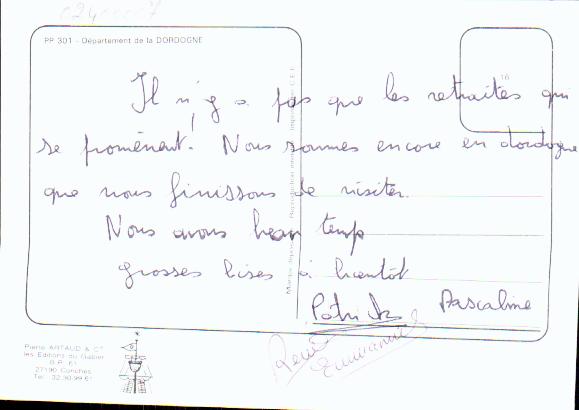 PP 301 - Département de la DORDOGNE
16
Il n'y a pas que les retraités qui
se promènent! Nous sommes encore en dordogne
que nous finissons de visiter.
Nous avons beau temp
grosses bises à bientôt
Patrick Pascaline
René
Emmanuel
Pierre ARTAUD & Cie
les Editions du Gabier
B.P. 61
27190 Conches
Tél. 32.30.99.61